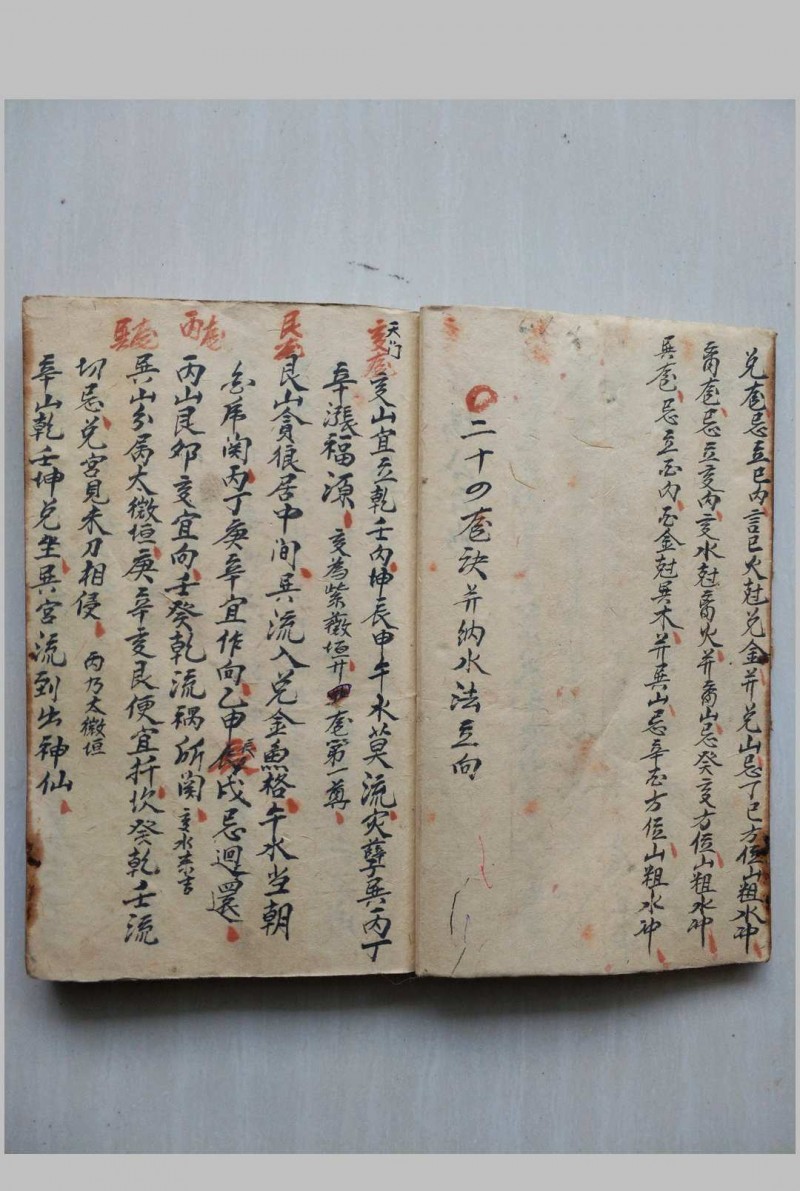 兑龍忌立巳内言巳火尅兑金并兑山忌丁巳方位山粗水冲
离龍忌立亥内亥水尅离火并离山忌癸亥方位山粗水冲
巽龍忌立酉内酉金尅巽木并巽山忌辛酉方位山粗水冲
二十四龍訣并纳水法立向
天门
亥龍
亥山宜立乾壬内坤辰申午水莫流灾孽巽丙丁
辛漲福源 亥為紫薇垣廾四龍第一尊
艮龍
艮山貪狼居中间巽流入兑金魚格午水当朝
丙丁庚辛宜作向乙申辰戌忌迴還
丙龍
丙山艮卯亥宜向壬癸乾流禍所関 亥水亦吉
巽龍
巽山分属太微垣庚辛亥艮便宜扦坎癸乾壬流
切忌兑宫見未刀相侵 丙乃太微垣
辛山乾壬坤兑坐巽宫流到出神仙